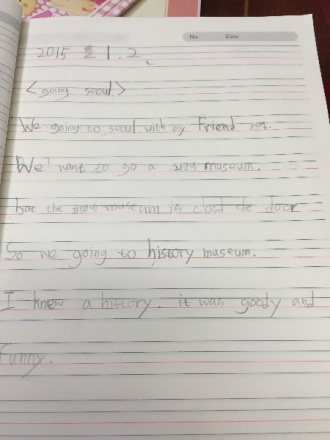 No. Date
2015 1. 2.
<going seoul>
We going to seoul with my Friend
We want to go a museum.
the museum is clod the door
So we going to history museum.
I knew a history. it was goody and
funny.